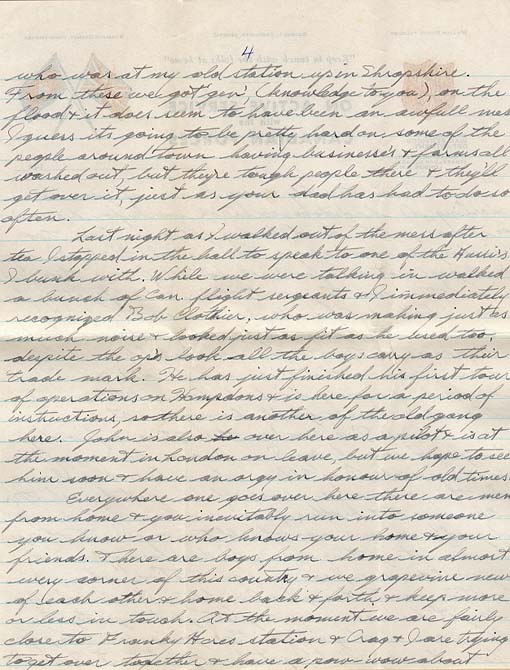 4
who was at my old station up in Shropshire.
From these we got gen, (knowledge to you), on the
flood & it does seem to have been an awfull mess
I guess its going to be pretty hard on some of the
people around town having business's & farms all
washed out, but they're tough people there & they'll
get over it, just as your dad has had to do so
often.
Last night as I walked out of the mess after
tea I stopped in the hall to speak to one of the
I bunk with. While we were talking in walked
a bunch of Can flight sergeants & I immediately
recognized Bob Clothier, who was making just as
much noise & looked just as fit as he used too,
despite the op's look all the boys carry as their
trade mark. He has just finished his first tour
of operations on Hampdons & is here for a period of
instructions, so there is another of the old gang
here. John is also over here as a pilot & is at
the moment in London on leave, but we hope to see
him soon & have an orgy in honour of old times
Everywhere one goes over here there are men
from home & you inevitably run into someone
you know or who knows your home & your
friends. There are boys from home in almost
every corner of this county & we grapevine new
of each other & home back & forth & keep more
or less in touch. At the moment we are fairly
close to Franky station & Crag & I are trying
to get over together & have a pow-wow about
"Keep in touch with the folks at home"
ON ACTIVE SERVICE
WITH THE
CANADIAN FORCES